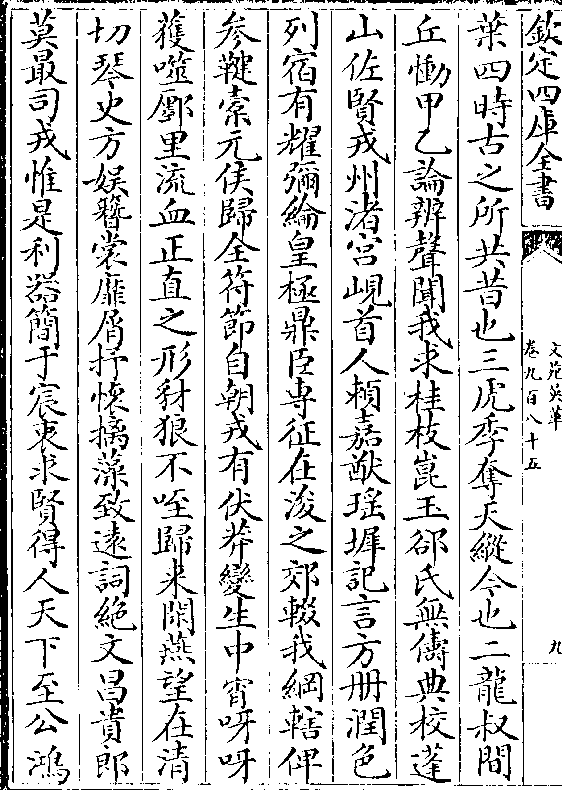 欽定四庫全書
文苑英華
卷九百八十五
九
葉四時古之所共昔也三虎季奪天縱今也二龍叔間
丘慟甲乙論辨聲聞我求桂枝崑玉郤氏無儔典校蓬
山佐賢戎州渚宮峴首人頼嘉猷瑶墀記言方冊潤色
列宿有耀彌綸皇極鼎臣専征在浚之郊輟我綱轄俾
参鞬櫜元侯歸全符節自朝戎有伏莽變生中宵呀呀
蒦噬酆里流血正直之形豺狼不咥歸来閑燕望在清
切琴史方娱簪裳靡屑抒懷摛藻致逺詞絶文昌貴郎
莫最司戎惟是利器簡于宸衷求賢得人天下至公鴻